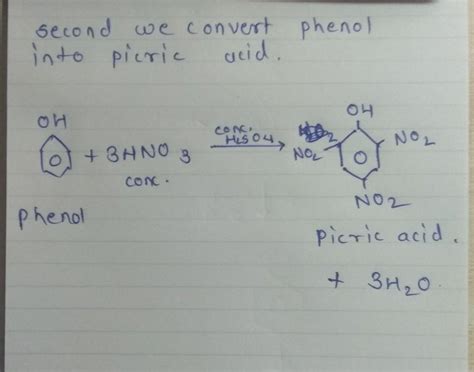 second we convert phenol
into picric acid.
OH
+ 3HNO3
conc.
conc.
H2SO4
OH
NO2
NO2
NO2
phenol
picric acid.
+ 3H2O